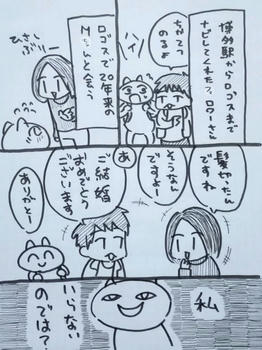 博多駅からロゴスまで
ナビしてくれたフォロワーさん
ちかてつ
のるよ
ロゴスで20年来の
Mちゃんと会う
ひさし
ぶりー
髪切ったん
ですね
そうなん
ですよー
あ
ご結婚
おめでとう
ございます
ありがとー
私
いらない
のでは?